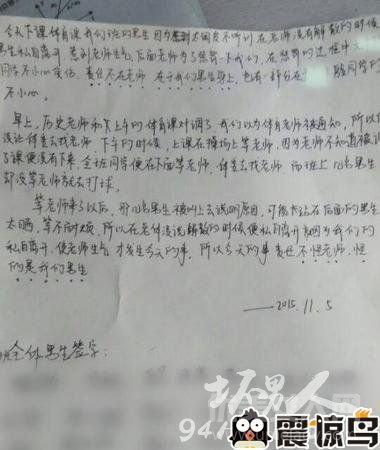 今天下午体育课我们班的男生因为太调皮不听训 在老师没有解散的时候
男生私自离开 惹到老师生气 后面老师为了惩罚一下我们, 在惩罚的过程中
同学不小心受伤 责任不在老师 在于我们男生身上, 也有一部分在 同学的
不小心.
早上, 历史老师和下午的体育课对调了 我们以为体育老师被通知, 所以
没让体委去找老师 下午的时候, 上课在操场上等老师, 因为老师不知道被调
了课便没有下来, 全班同学便在下面等老师, 体委去找老师 而班上10名男生
却没等老师就去打球.
等老师来了以后, 那10名男生被叫上去说明原因, 可能站在后面的男生
太晒, 等不耐烦, 所以在老体没说解散的时候便私自离开 就因为我们的
私自离开, 使老师生气 才发生今天的事, 所以今天的事 责任不怪老师, 怪
的是我们男生
——2015.11.5
班全体男生签字:
坏男人
震惊鸟